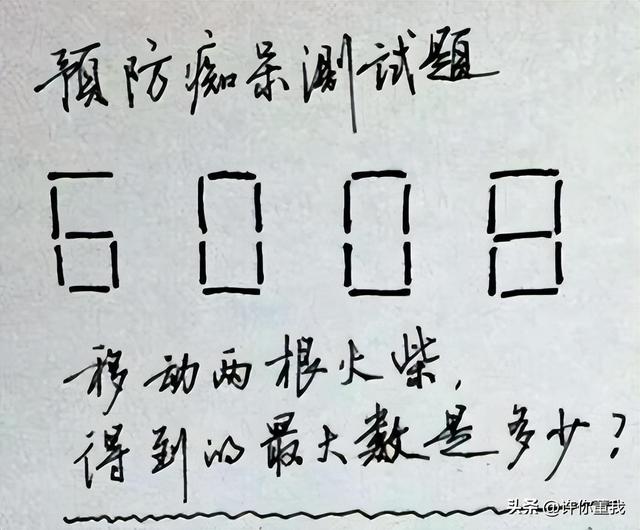 预防痴呆测试题
6008
移动两根火柴,
得到的最大数是多少?
头条 @许你董我